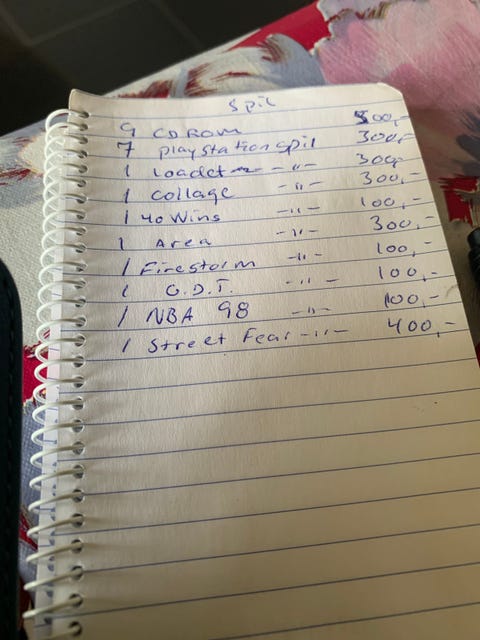 Spil
9 CD ROM 500,-
7 playstation spil 300,-
1 Loadet -"- 300,-
1 Collage -"- 300,-
1 40 Wins -"- 100,-
1 Area -"- 300,-
1 Firestorm -"- 100,-
1 O.D.T. -"- 100,-
1 NBA 98 -"- 100,-
1 Street Fear -"- 400,-